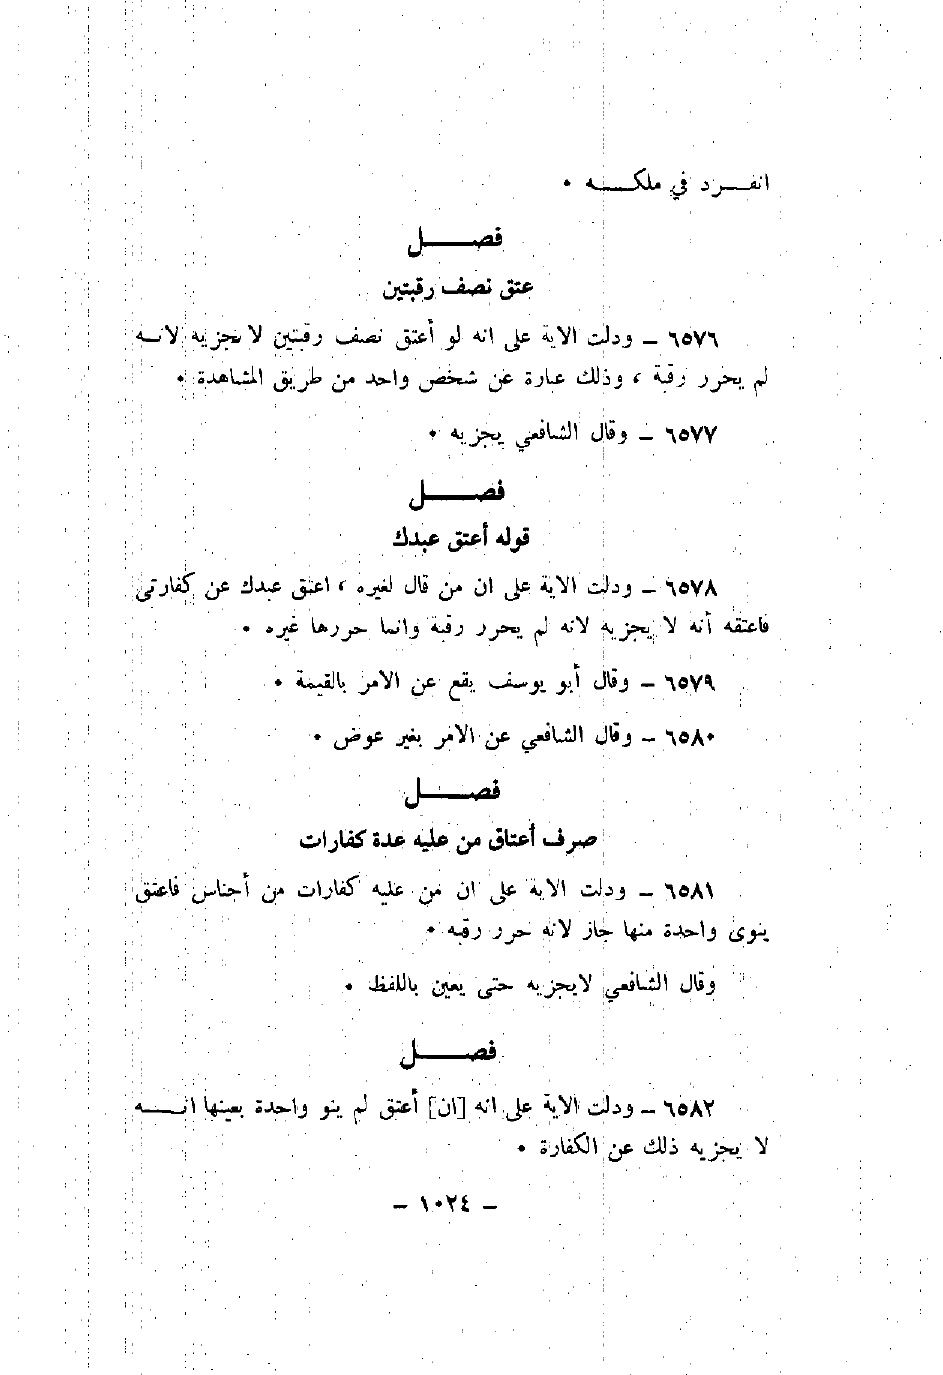 انفـــرد في ملكـــه .
فصـــل
عتق نصف رقبتين
٦٥٧٦ – ودلت الاية على انه لو أعتق نصف رقبتين لا يجزيه لانـه
لم يحرر رقبة ، وذلك عبارة عن شخص واحد من طريق المشاهدة .
٦٥٧٧ – وقال الشافعي يجزيه .
فصـــل
قوله أعتق عبدك
٦٥٧٨ – ودلت الاية على ان من قال لغيره ، اعتق عبدك عن كفارتي
فاعتقه أنه لا يجزيه لانه لم يحرر رقبة وانما حررها غيره .
٦٥٧٩ – وقال أبو يوسف يقع عن الامر بالقيمة .
٦٥٨٠ – وقال الشافعي عن الامر بغير عوض .
فصـــل
صرف أعتاق من عليه عدة كفارات
٦٥٨١ – ودلت الاية على ان من عليه كفارات من أجناس فاعتق
ينوى واحدة منها جاز لانه حرر رقبه .
وقال الشافعي لايجزيه حتى يعين باللفظ .
فصـــل
٦٥٨٢ – ودلت الاية على انه [ان] أعتق لم ينو واحدة بعينها انـــه
لا يجزيه ذلك عن الكفارة .
– ١٠٢٤ –